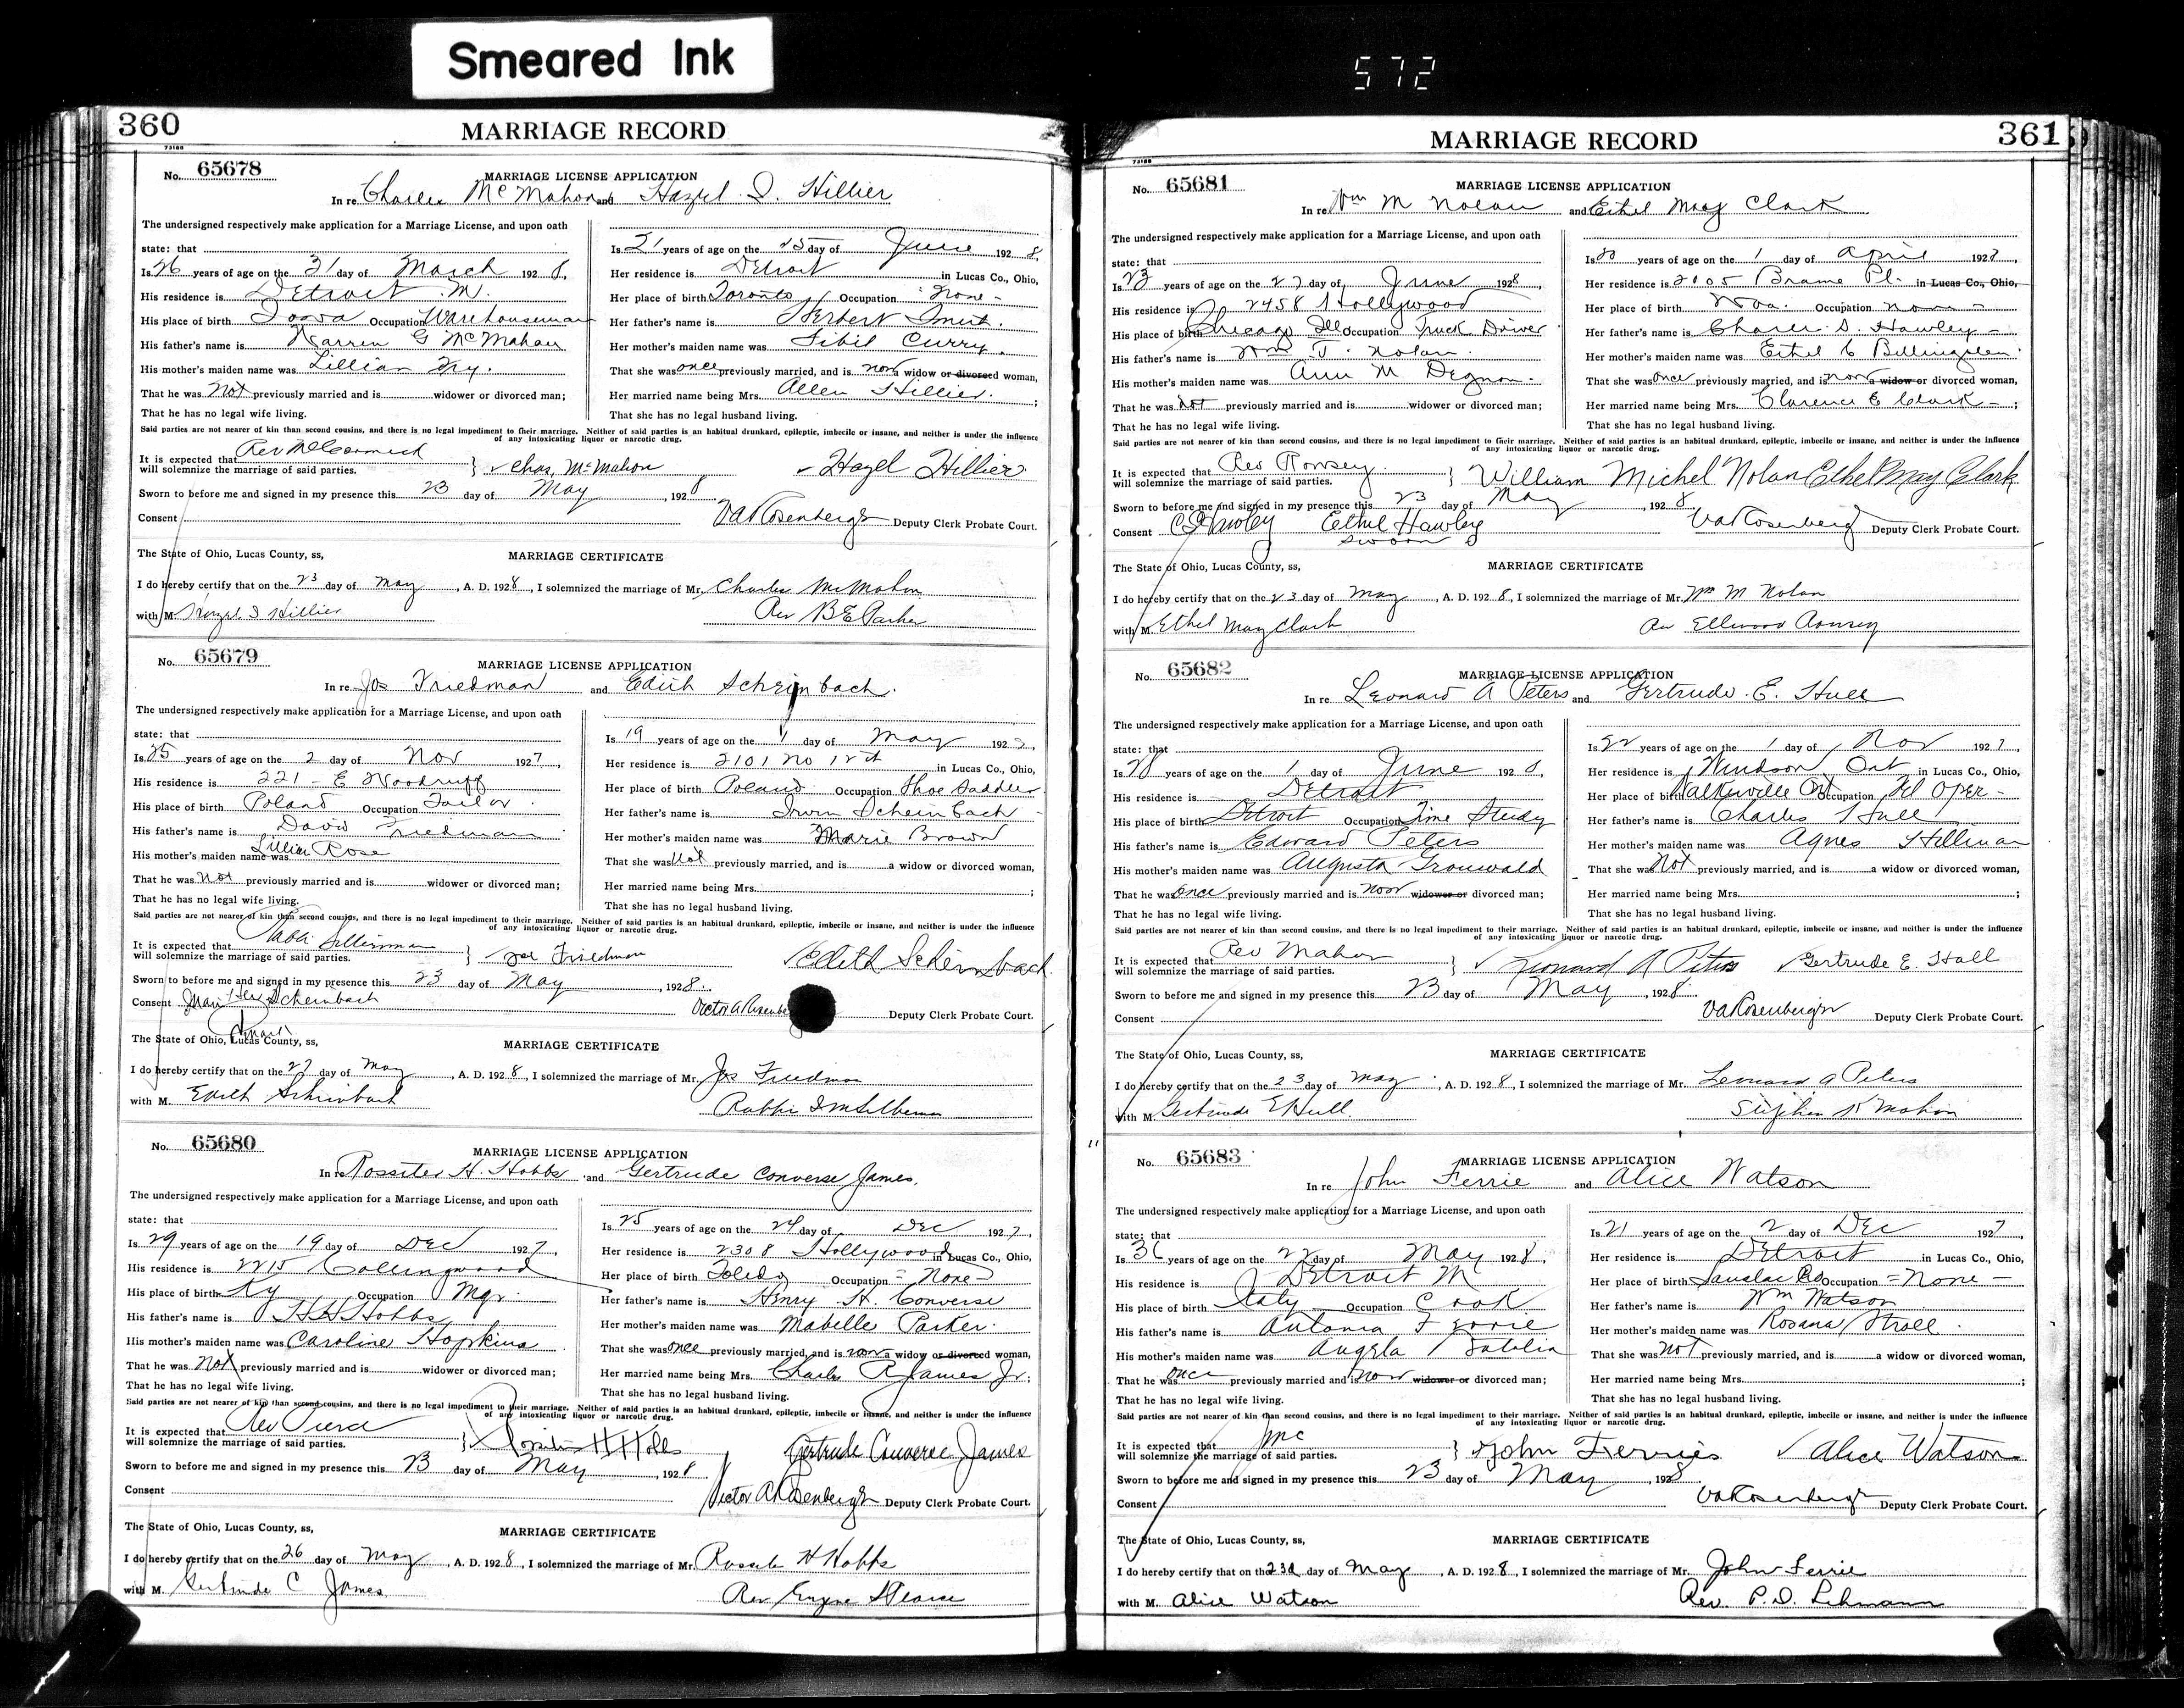 Smeared Ink
572
360
MARRIAGE RECORD
73188
No. 65678
MARRIAGE LICENSE APPLICATION
In re Charles McMahon and Hazel I. Hillier
The undersigned respectively make application for a Marriage License, and upon oath
state: that
Is 26 years of age on the 31 day of March 1928,
His residence is Detroit M.
His place of birth Iowa Occupation Warehouseman
His father's name is Warren G McMahon
His mother's maiden name was Lillian Fry.
That he was Not previously married and is widower or divorced man;
That he has no legal wife living.
Is 21 years of age on the 25 day of June 1928,
Her residence is Detroit in Lucas Co., Ohio,
Her place of birth Toronto Occupation None -
Her father's name is Herbert
Her mother's maiden name was Sibil Curry.
That she was once previously married, and is now a widow or divorced woman,
Her married name being Mrs. Allen Hillier. ;
That she has no legal husband living.
Said parties are not nearer of kin than second cousins, and there is no legal impediment to their marriage. Neither of said parties is an habitual drunkard, epileptic, imbecile or insane, and neither is under the influence
of any intoxicating liquor or narcotic drug.
It is expected that Rev McCormick
will solemnize the marriage of said parties. } Chas. McMahon Hazel Hillier
Sworn to before me and signed in my presence this 23 day of May, 1928
Consent VA Rosenbergh Deputy Clerk Probate Court.
The State of Ohio, Lucas County, ss, MARRIAGE CERTIFICATE
I do hereby certify that on the 23 day of May, A. D. 1928, I solemnized the marriage of Mr. Charles McMahon
with M. Hazel I Hillier Rev B E Parker
No. 65679
MARRIAGE LICENSE APPLICATION
In re Jos Friedman and Edith Scheinbach.
The undersigned respectively make application for a Marriage License, and upon oath
state: that
Is 25 years of age on the 2 day of Nov 1927,
His residence is 221 - E Woodruff
His place of birth Poland Occupation Tailor.
His father's name is David Friedman
His mother's maiden name was Lillian Rose
That he was Not previously married and is widower or divorced man;
That he has no legal wife living.
Is 19 years of age on the 1 day of May 192 ,
Her residence is 2101 No 12th in Lucas Co., Ohio,
Her place of birth Poland Occupation Shoe Saddler
Her father's name is Irwin Scheinbach
Her mother's maiden name was Marie Brown
That she was Not previously married, and is a widow or divorced woman,
Her married name being Mrs. ;
That she has no legal husband living.
Said parties are not nearer of kin than second cousins, and there is no legal impediment to their marriage. Neither of said parties is an habitual drunkard, epileptic, imbecile or insane, and neither is under the influence
of any intoxicating liquor or narcotic drug.
It is expected that Rabbi Silberman
will solemnize the marriage of said parties. } Joe Friedman Edith Scheinbach
Sworn to before me and signed in my presence this 23 day of May, 1928.
Consent Scheinbach Victor A Rosenbe Deputy Clerk Probate Court.
The State of Ohio, Lucas County, ss, MARRIAGE CERTIFICATE
I do hereby certify that on the 27 day of May, A. D. 1928, I solemnized the marriage of Mr. Jos Friedman
with M. Edith Scheinbach Rabbi I M Silberman
No. 65680
MARRIAGE LICENSE APPLICATION
In re Rossiter H. Hobbs and Gertrude Converse James.
The undersigned respectively make application for a Marriage License, and upon oath
state: that
Is 29 years of age on the 19 day of Dec 1927,
His residence is 2215 Collingwood
His place of birth Ky Occupation Mgr.
His father's name is H H Hobbs
His mother's maiden name was Caroline Hopkins
That he was Not previously married and is widower or divorced man;
That he has no legal wife living.
Is 25 years of age on the 24 day of Dec 1927,
Her residence is 2308 Hollywood in Lucas Co., Ohio,
Her place of birth Toledo Occupation - None -
Her father's name is Henry H. Converse
Her mother's maiden name was Mabelle Parker.
That she was once previously married, and is now a widow or divorced woman,
Her married name being Mrs. Charles R James Jr. ;
That she has no legal husband living.
Said parties are not nearer of kin than second cousins, and there is no legal impediment to their marriage. Neither of said parties is an habitual drunkard, epileptic, imbecile or insane, and neither is under the influence
of any intoxicating liquor or narcotic drug.
It is expected that Rev Pierce
will solemnize the marriage of said parties. } Rossiter H Hobbs Gertrude Converse James
Sworn to before me and signed in my presence this 23 day of May, 1928
Consent Victor A Rosenbergh Deputy Clerk Probate Court.
The State of Ohio, Lucas County, ss, MARRIAGE CERTIFICATE
I do hereby certify that on the 26 day of May, A. D. 1928, I solemnized the marriage of Mr. Rossiter H Hobbs
with M. Gertrude C James Rev Eugene Pearce
361
MARRIAGE RECORD
73188
No. 65681
MARRIAGE LICENSE APPLICATION
In re Wm M Nolan and Ethel May Clark
The undersigned respectively make application for a Marriage License, and upon oath
state: that
Is 23 years of age on the 27 day of June 1928
His residence is 2458 Hollywood
His place of birth Chicago Ill Occupation Truck Driver
His father's name is Wm J. Nolan.
His mother's maiden name was Ann M Degnon.
That he was not previously married and is widower or divorced man;
That he has no legal wife living.
Is 20 years of age on the 1 day of April 1928,
Her residence is 2105 Brame Pl. in Lucas Co., Ohio,
Her place of birth Occupation none
Her father's name is Charles S. Hawley -
Her mother's maiden name was Ethel C
That she was once previously married, and is now a widow or divorced woman,
Her married name being Mrs. Clarence E Clark - ;
That she has no legal husband living.
Said parties are not nearer of kin than second cousins, and there is no legal impediment to their marriage. Neither of said parties is an habitual drunkard, epileptic, imbecile or insane, and neither is under the influence
of any intoxicating liquor or narcotic drug.
It is expected that Rev Rowsey.
will solemnize the marriage of said parties. } William Michel Nolan Ethel May Clark
Sworn to before me and signed in my presence this 23 day of May, 1928
Consent C S Hawley Ethel Hawley VA Rosenbergh Deputy Clerk Probate Court.
sworn
The State of Ohio, Lucas County, ss, MARRIAGE CERTIFICATE
I do hereby certify that on the 23 day of May, A. D. 1928, I solemnized the marriage of Mr. Wm M Nolan
with M. Ethel May Clark Rev Ellwood Rowsey
No. 65682
MARRIAGE LICENSE APPLICATION
In re Leonard A Peters and Gertrude E. Hull
The undersigned respectively make application for a Marriage License, and upon oath
state: that
Is 28 years of age on the 1 day of June 1928,
His residence is Detroit
His place of birth Detroit Occupation Time Study
His father's name is Edward Peters
His mother's maiden name was Augusta Gronwald
That he was once previously married and is now widower or divorced man;
That he has no legal wife living.
Is 22 years of age on the 1 day of Nov 1927,
Her residence is Windsor Ont in Lucas Co., Ohio,
Her place of birth Walkerville Ont Occupation Tel Oper -
Her father's name is Charles Hull
Her mother's maiden name was Agnes Hillman
That she was Not previously married, and is a widow or divorced woman,
Her married name being Mrs. ;
That she has no legal husband living.
Said parties are not nearer of kin than second cousins, and there is no legal impediment to their marriage. Neither of said parties is an habitual drunkard, epileptic, imbecile or insane, and neither is under the influence
of any intoxicating liquor or narcotic drug.
It is expected that Rev Mahon
will solemnize the marriage of said parties. } Leonard A Peters Gertrude E. Hull
Sworn to before me and signed in my presence this 23 day of May, 1928.
Consent VA Rosenbergh Deputy Clerk Probate Court.
The State of Ohio, Lucas County, ss, MARRIAGE CERTIFICATE
I do hereby certify that on the 23 day of May, A. D. 1928, I solemnized the marriage of Mr. Leonard A Peters
with M. Gertrude E Hull Stephen K Mahon
No. 65683
MARRIAGE LICENSE APPLICATION
In re John Ferrie and Alice Watson
The undersigned respectively make application for a Marriage License, and upon oath
state: that
Is 36 years of age on the 22 day of May 1928,
His residence is Detroit M
His place of birth Italy Occupation Cook
His father's name is Antonia Ferrie
His mother's maiden name was Angela
That he was once previously married and is now widower or divorced man;
That he has no legal wife living.
Is 21 years of age on the 2 day of Dec 1927
Her residence is Detroit in Lucas Co., Ohio,
Her place of birth Sanilac Co Occupation - None -
Her father's name is Wm Watson
Her mother's maiden name was Rosana
That she was Not previously married, and is a widow or divorced woman,
Her married name being Mrs. ;
That she has no legal husband living.
Said parties are not nearer of kin than second cousins, and there is no legal impediment to their marriage. Neither of said parties is an habitual drunkard, epileptic, imbecile or insane, and neither is under the influence
of any intoxicating liquor or narcotic drug.
It is expected that
will solemnize the marriage of said parties. } John Ferries Alice Watson
Sworn to before me and signed in my presence this 23 day of May, 1928
Consent VA Rosenbergh Deputy Clerk Probate Court.
The State of Ohio, Lucas County, ss, MARRIAGE CERTIFICATE
I do hereby certify that on the 23d day of May, A. D. 1928, I solemnized the marriage of Mr. John Ferrie
with M. Alice Watson Rev. P. D. Lehmann